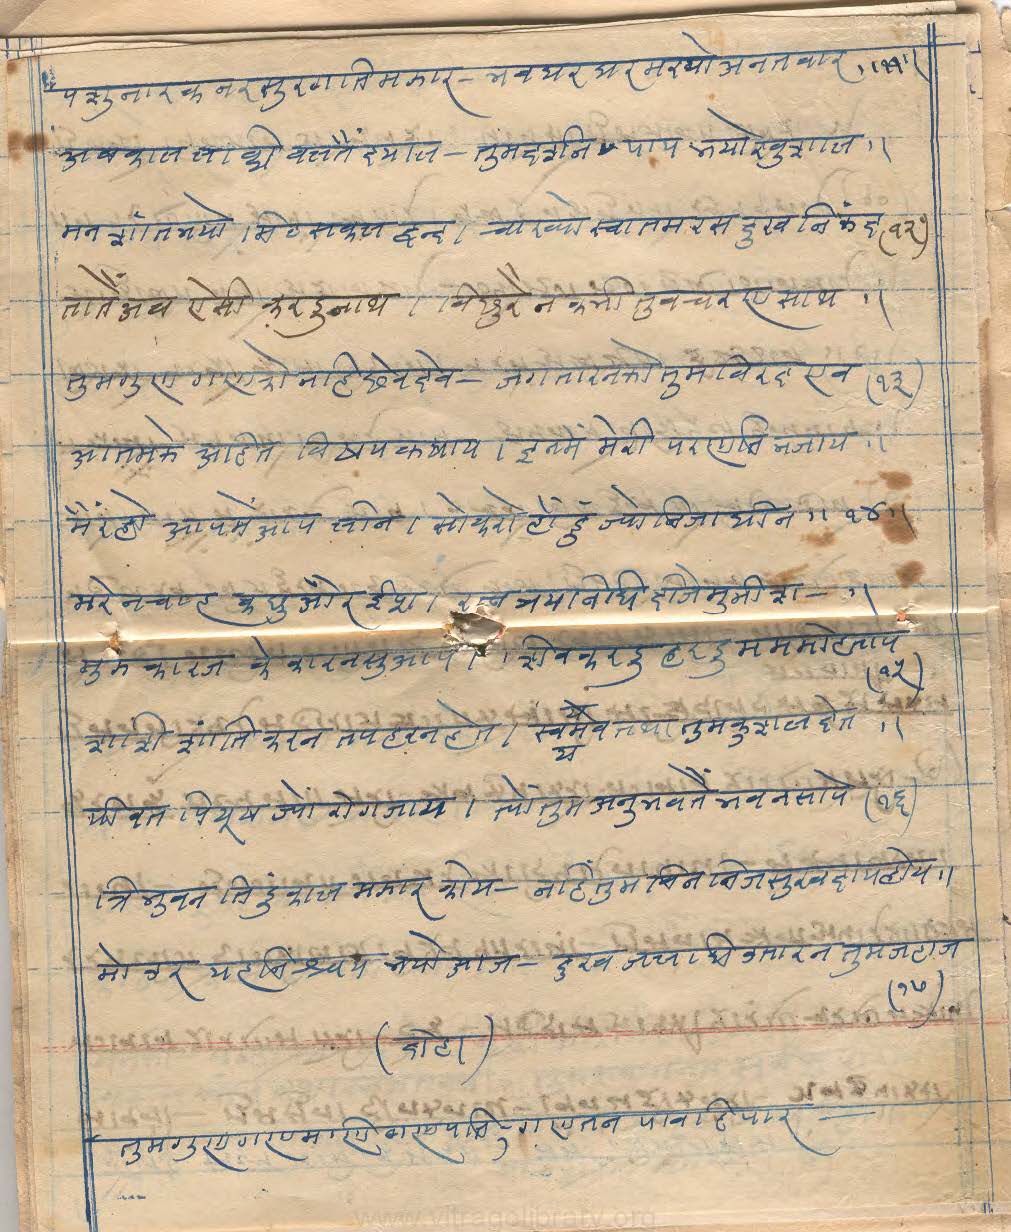 पशुनारक नर सुरगति मझार – भव धर धर मरयो अनंत वार ।।११।।
अब काल लब्धी बलतैं दयाल – तुम दर्शनि पाय भयो खुशाल ।।
मन शांत भयो मिट सकल द्वन्द । चाख्यो स्वातम रस दुख निकंद (१२)
तातैं अब ऐसी करहु नाथ । विछुरै न कभी तुव चरण साथ ।।
तुम गुण गणको नाहि छेव देव – जग तारनको तुम विरद एव (१३)
आतमके अहित विषय कषाय । इनमें मेरी परणति न जाय ।।
मैं रहों आपमें आप लीन । सो करो होंहुं ज्यो निजाधीन ।। १४ ।।
मेरे न चाह कछु और ईश । रत्नत्रयनिधि दीजे मुनीश – ।।
मुझ कारज के कारन सु आप । शिव करहु हरहु मम मोहताप (१५)
शशी शांति करन तपहरन हेत । स्वयमेव तथा तुम कुशल देत ।।
पीवत पियूष ज्यो रोग जाय । त्यो तुम अनुभवतैं भव नसाय (१६)
त्रिभुवन तिहुं काल मझार कोय – नाहिं तुम बिन निज सुखदाय होय ।।
मो उर यह निश्चय भयो आज – दुख जलधि उतारन तुम जहाज (१७)
(दोहा)
तुम गुण गण मणि गणपति, गणत न पावहि पार –
www.vitragolibrary.org